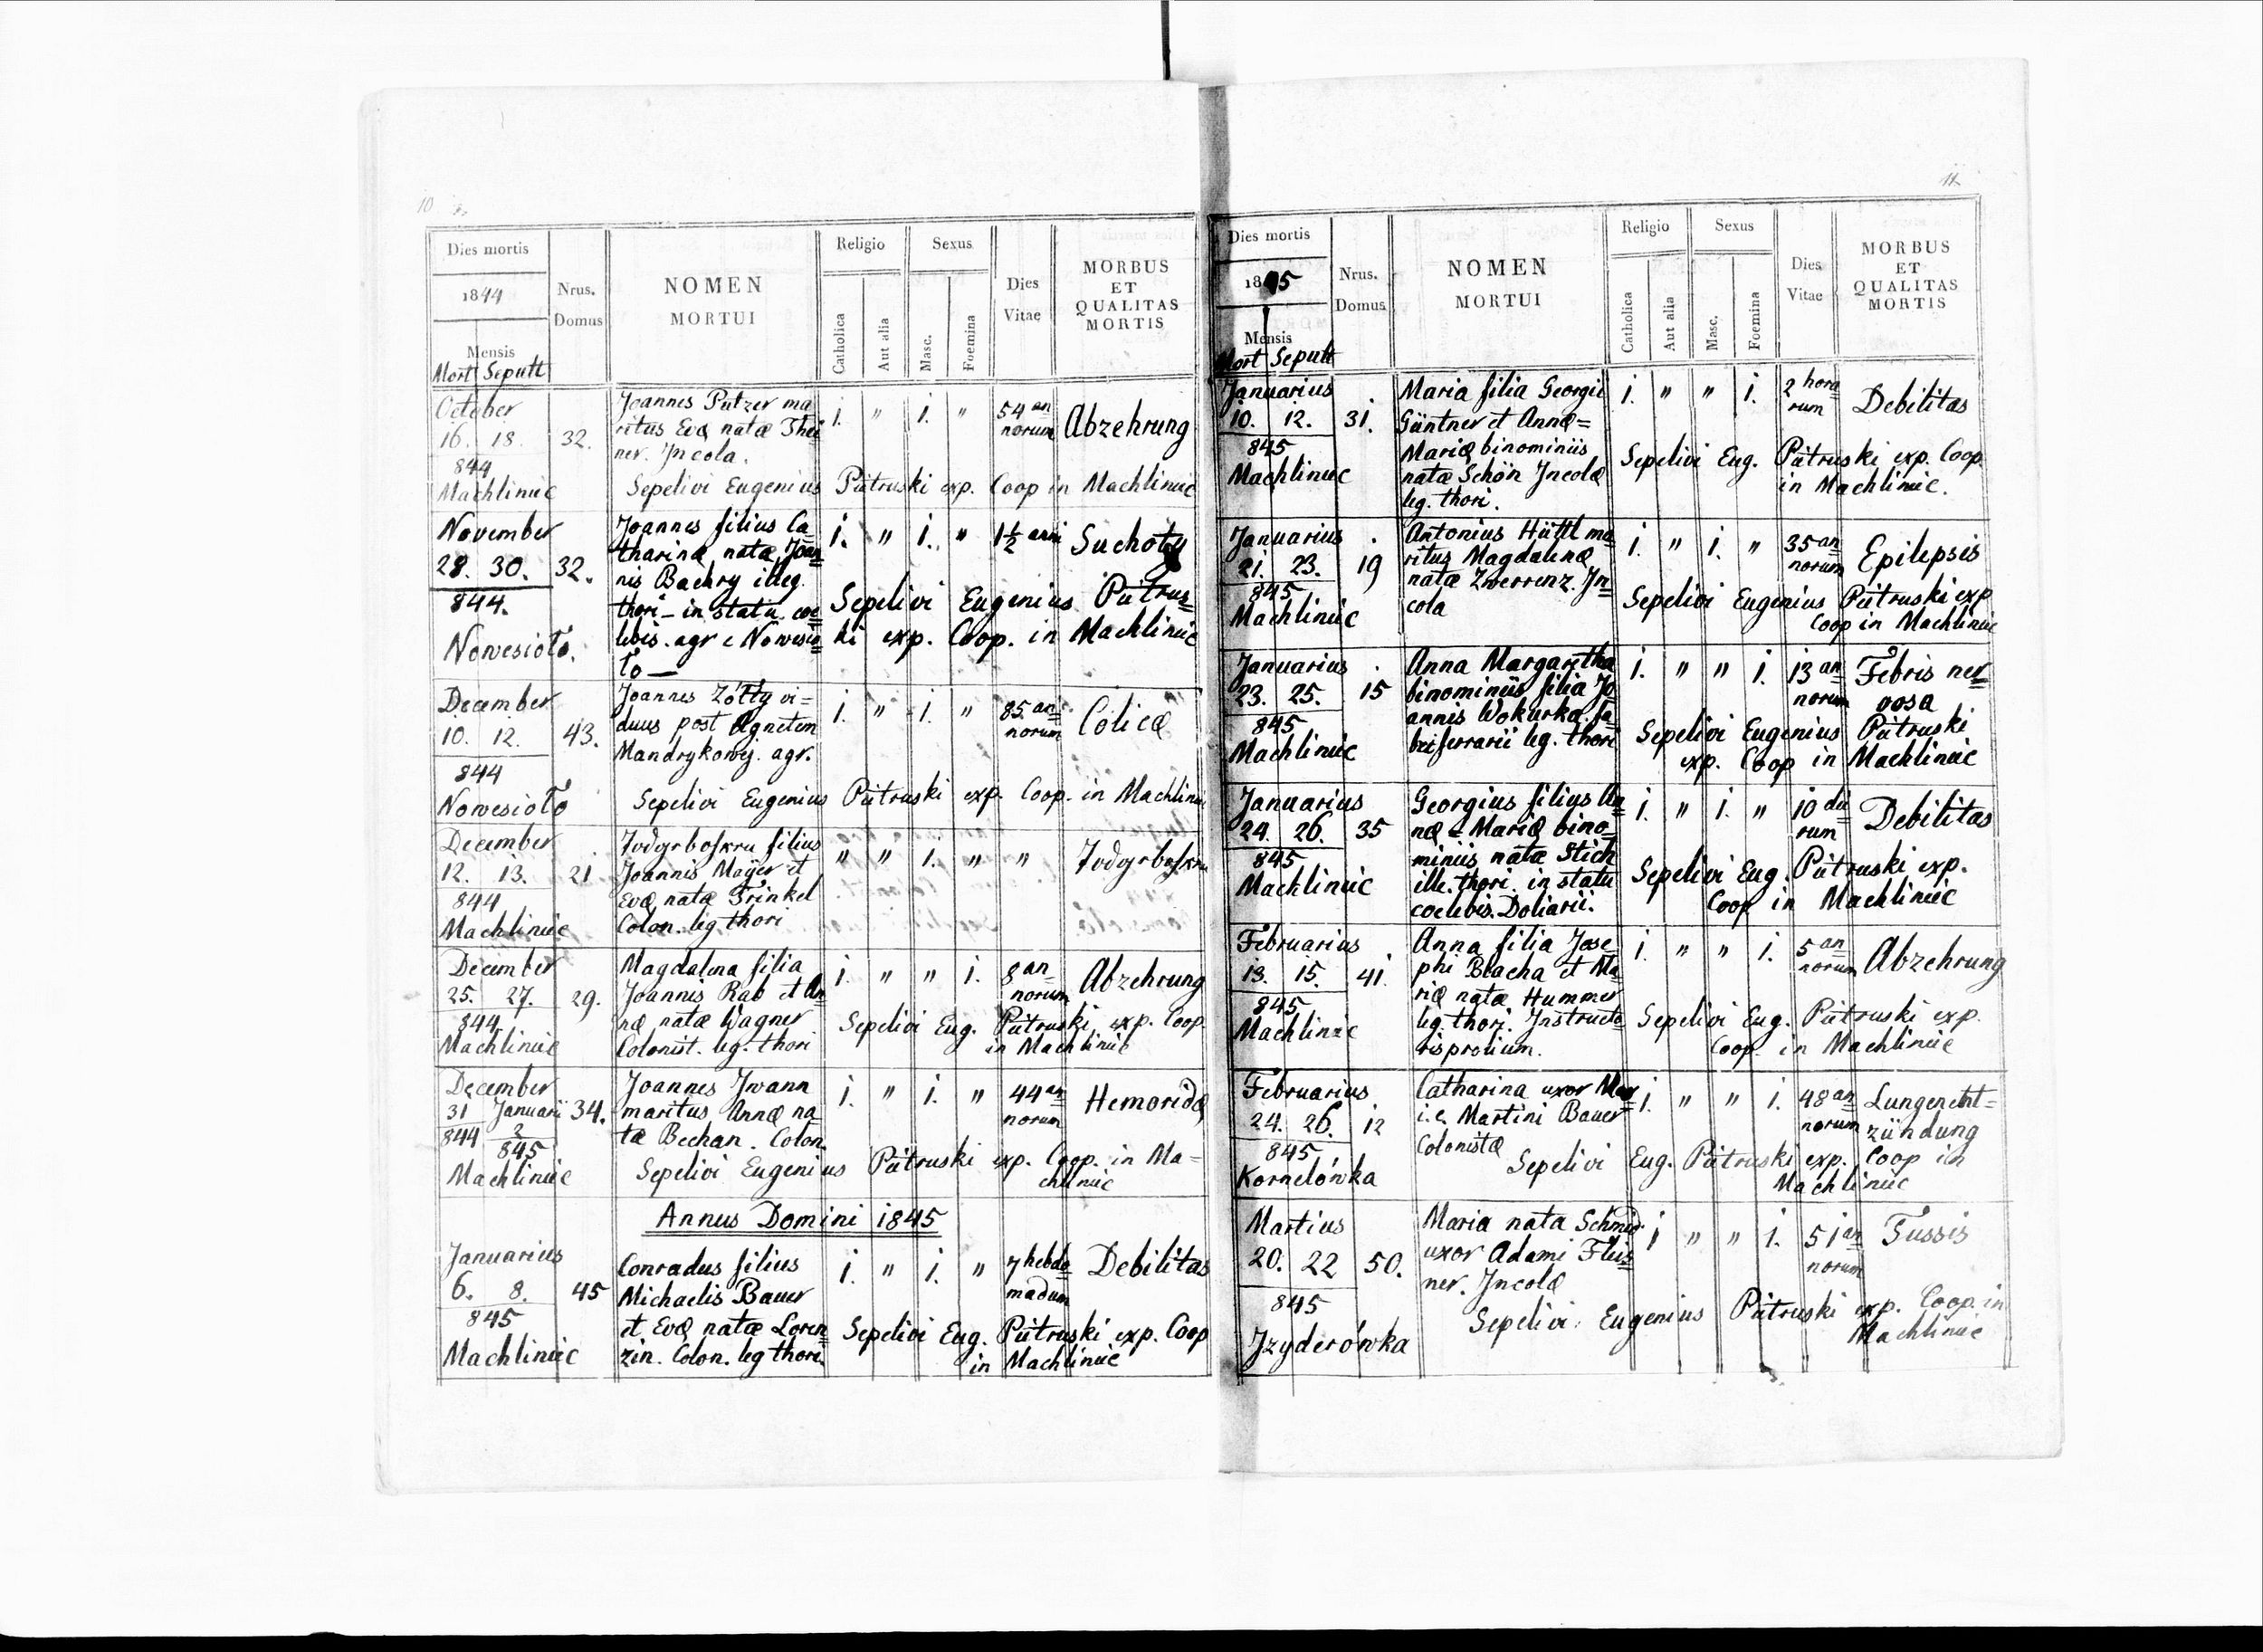 10
Dies mortis
1844
Mensis
Mort Sepult
Nrus.
Domus
NOMEN
MORTUI
Religio
Catholica
Aut alia
Sexus
Masc.
Foemina
Dies
Vitae
MORBUS
ET
QUALITAS
MORTIS
October
16. 18. 32.
844
Machliniec
Joannes Putzer ma=
ritus Evæ natæ Thei
ner. Incola.
1. " 1. " 54 an=
norum
Abzehrung
Sepelivi Eugenius Pietruski exp. Coop in Machliniec
November
28. 30. 32.
844.
Nowesioło.
Joannes filius Ca=
tharinæ natæ Joan=
nis Bachry illeg.
thori - in statu coe=
lebis. agr e Nowesio=
ło —
1. " 1. " 1½ anni
Suchoty
Sepelivi Eugenius Pietrus=
ki exp. Coop. in Machliniec
December
10. 12. 43.
844
Nowesioło
Joannes Żółty vi=
duus post Agnetem
Mandrykowej. agr.
1. " 1. " 85 an=
norum
Colica
Sepelivi Eugenius Pietruski exp. Coop. in Machliniec
December
12. 13. 21.
844
Machliniec
filius
Joannis Mayer et
Evæ natæ Trinkel
Colon. leg thori
" " 1. " "
December
25. 27. 29.
844
Machliniec
Magdalena filia
Joannis Rab et An=
næ natæ Wagner
Colonist. leg. thori
1. " " 1. 8 an=
norum
Abzehrung
Sepelivi Eug. Pietruski exp. Coop.
in Machliniec
December
31 Januarii 34.
844 2
845
Machliniec
Joannes Iwann
maritus Annæ na=
tæ Bechan. Colon.
1. " 1. " 44 an=
norum
Hemoridæ
Sepelivi Eugenius Pietruski exp. Coop. in Ma=
chliniec
Annus Domini 1845
Januarius
6. 8. 45
845
Machliniec
Conradus filius
Michaelis Bauer
et Evæ natæ Loren=
zin. Colon. leg thori.
1. " 1. " 7 hebdo=
madum
Debilitas
Sepelivi Eug. Pietruski exp. Coop
in Machliniec
11.
Dies mortis
1845
Mensis
Mort Sepult
Nrus.
Domus
NOMEN
MORTUI
Religio
Catholica
Aut alia
Sexus
Masc.
Foemina
Dies
Vitae
MORBUS
ET
QUALITAS
MORTIS
Januarius
10. 12. 31.
845
Machliniec
Maria filia Georgii
Güntner et Annæ=
Mariæ binominiis
natæ Schön Incolæ
leg. thori.
1. " " 1. 2 hora
rum
Debilitas
Sepelivi Eug. Pietruski exp. Coop.
in Machliniec.
Januarius
21. 23. 19
845
Machliniec
Antonius Hüttl ma=
ritus Magdalenæ
natæ Zwerrenz. In=
cola
1. " 1. " 35 an=
norum
Epilepsis
Sepelivi Eugenius Pietruski exp
Coop in Machliniec
Januarius
23. 25. 15
845
Machliniec
Anna Margaretha
binominiis filia Jo=
annis Wokurka. fa=
briferrarii leg. thori
1. " " 1. 13 an=
norum
Febris ner=
vosa
Sepelivi Eugenius Pietruski
exp. Coop in Machliniec
Januarius
24. 26. 35
845
Machliniec
Georgius filius An=
næ = Mariæ bino=
miniis natæ Stich
ille. thori. in statu
coelebis. Doliarii.
1. " 1. " 10 die
rum
Debilitas
Sepelivi Eug. Pietruski exp.
Coop in Machliniec
Februarius
13. 15. 41.
845
Machliniec
Anna filia Jose=
phi Blacha et Ma=
riæ natæ Hummer
leg. thori. Instructo=
ris prolium.
1. " " 1. 5 an=
norum
Abzehrung
Sepelivi Eug. Pietruski exp.
Coop. in Machliniec
Februarius
24. 26. 12
845
Kornelówka
Catharina uxor
i.e. Martini Bauer
Colonistæ
1. " " 1. 48 an=
norum
Lungenent=
zündung
Sepelivi Eug. Pietruski exp. Coop in
Machliniec
Martius
20. 22 50.
845
Izyderówka
Maria nata Schmid
uxor Adami Fleis=
ner. Incolæ
1 " " 1. 51 an=
norum
Tussis
Sepelivi Eugenius Pietruski exp. Coop. in
Machliniec